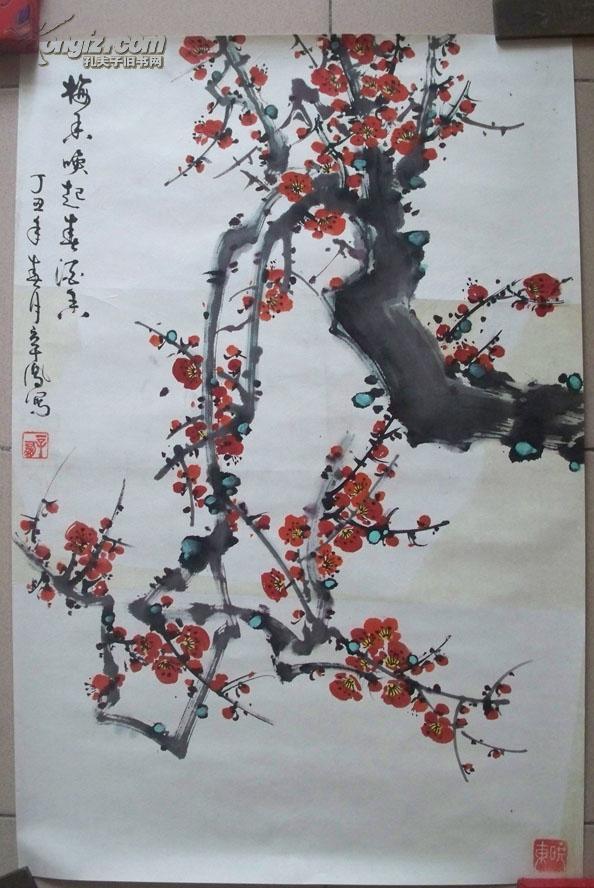 Kongfz.com
孔夫子旧书网
梅香唤起春酒香
丁丑年春月辛鳳写